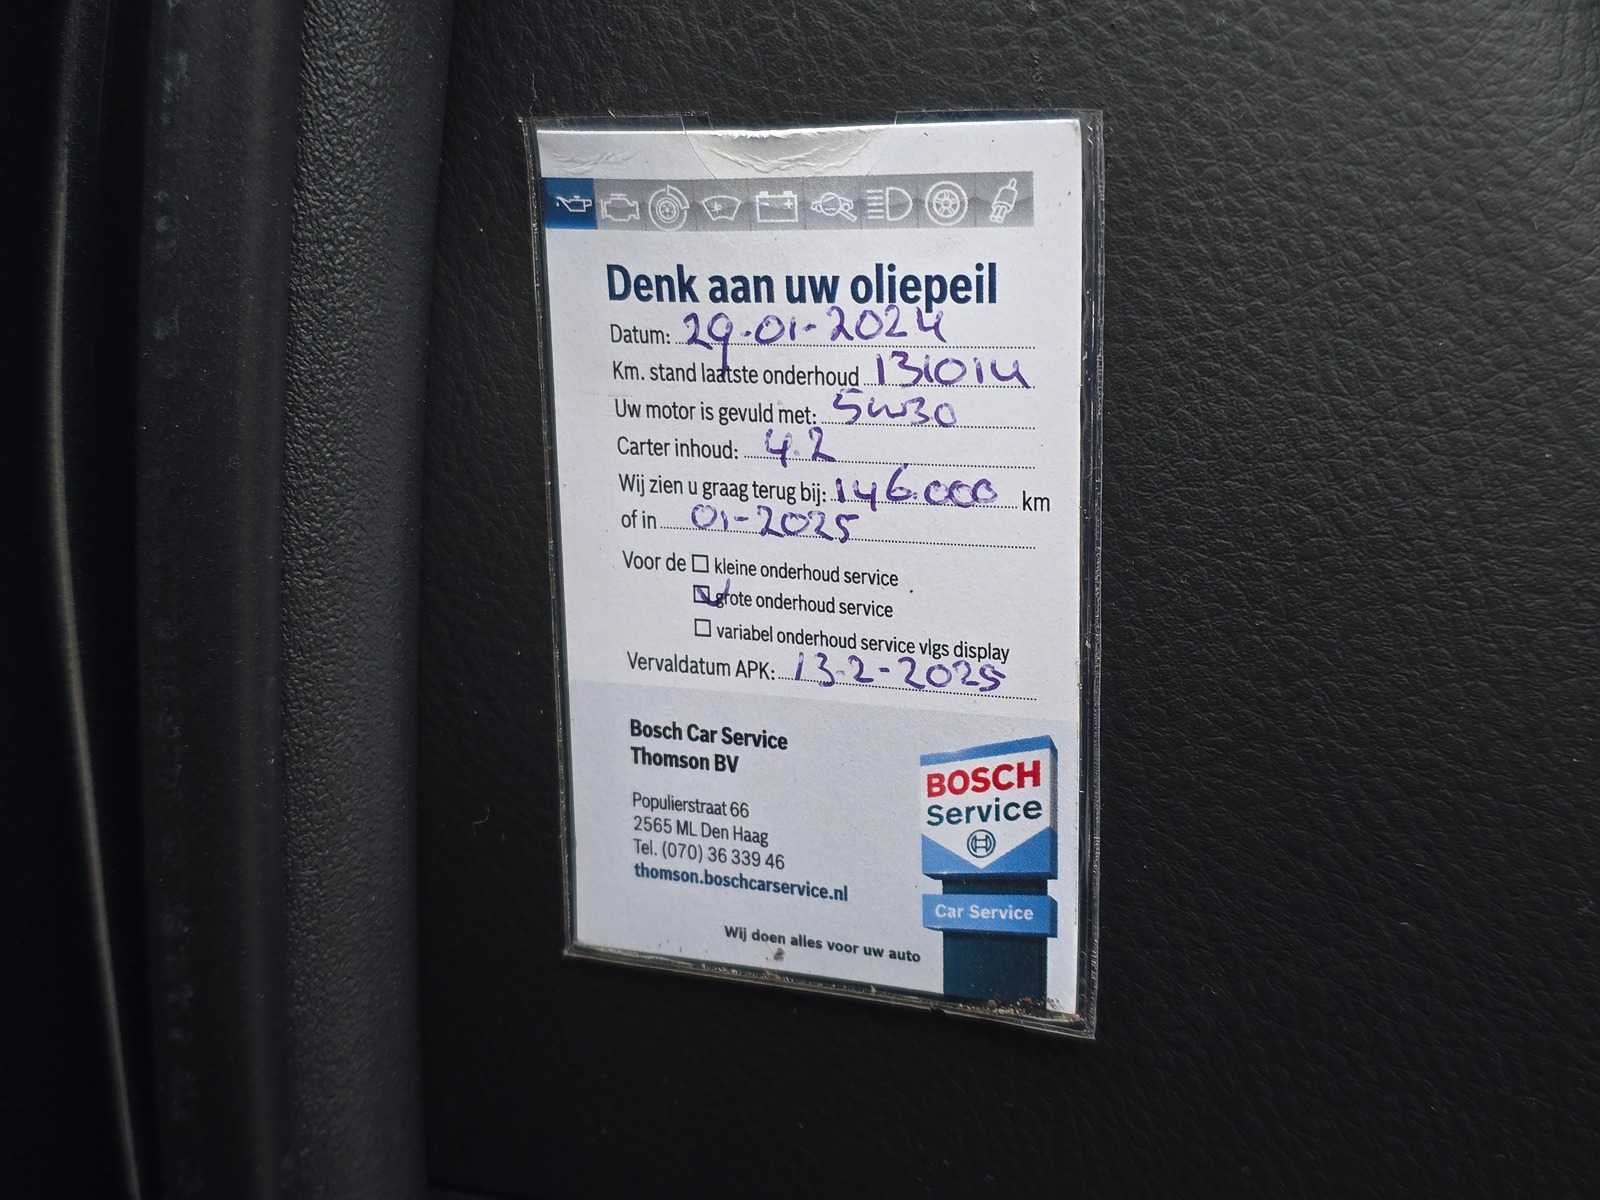 Denk aan uw oliepeil
Datum: 29-01-2024
Km. stand laatste onderhoud 131014
Uw motor is gevuld met: 5w30
Carter inhoud: 4.2
Wij zien u graag terug bij: 146.000 km
of in 01-2025
Voor de kleine onderhoud service
grote onderhoud service
variabel onderhoud service vlgs display
Vervaldatum APK: 13-2-2025
Bosch Car Service
Thomson BV
Populierstraat 66
2565 ML Den Haag
Tel. (070) 36 339 46
thomson.boschcarservice.nl
Wij doen alles voor uw auto
BOSCH
Service
Car Service